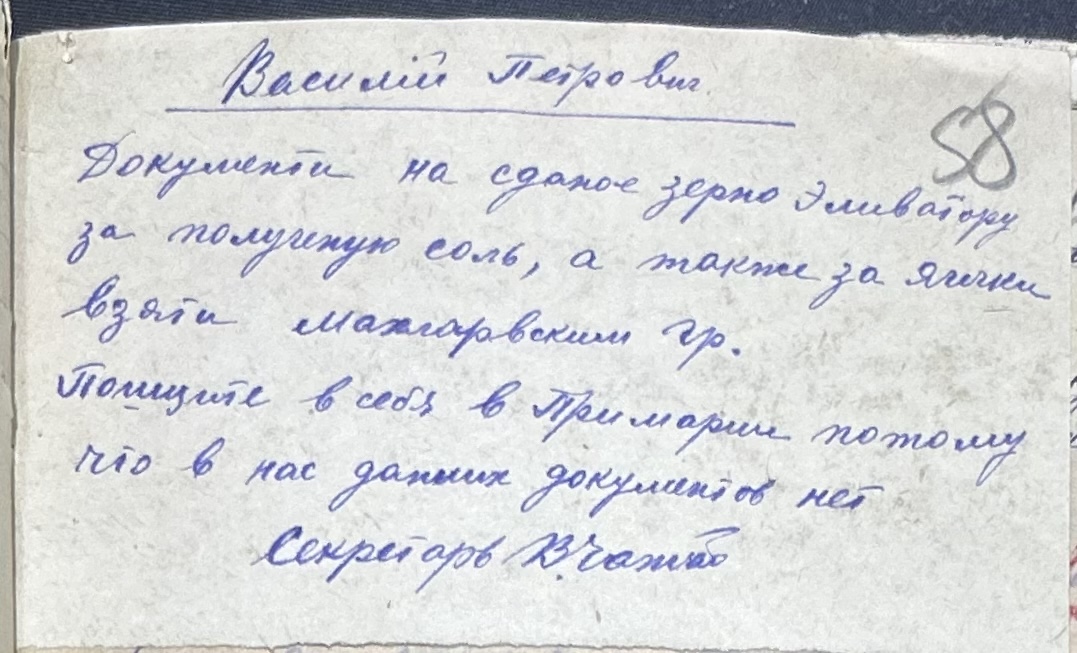 Василій Петрович
58
Документи на сданое зерно Эливатору
за получену́ю соль, а также за яички
взяти гр.
Поищите в себя в Примарии потому
что в нас данних документов нет
Секретарь В.